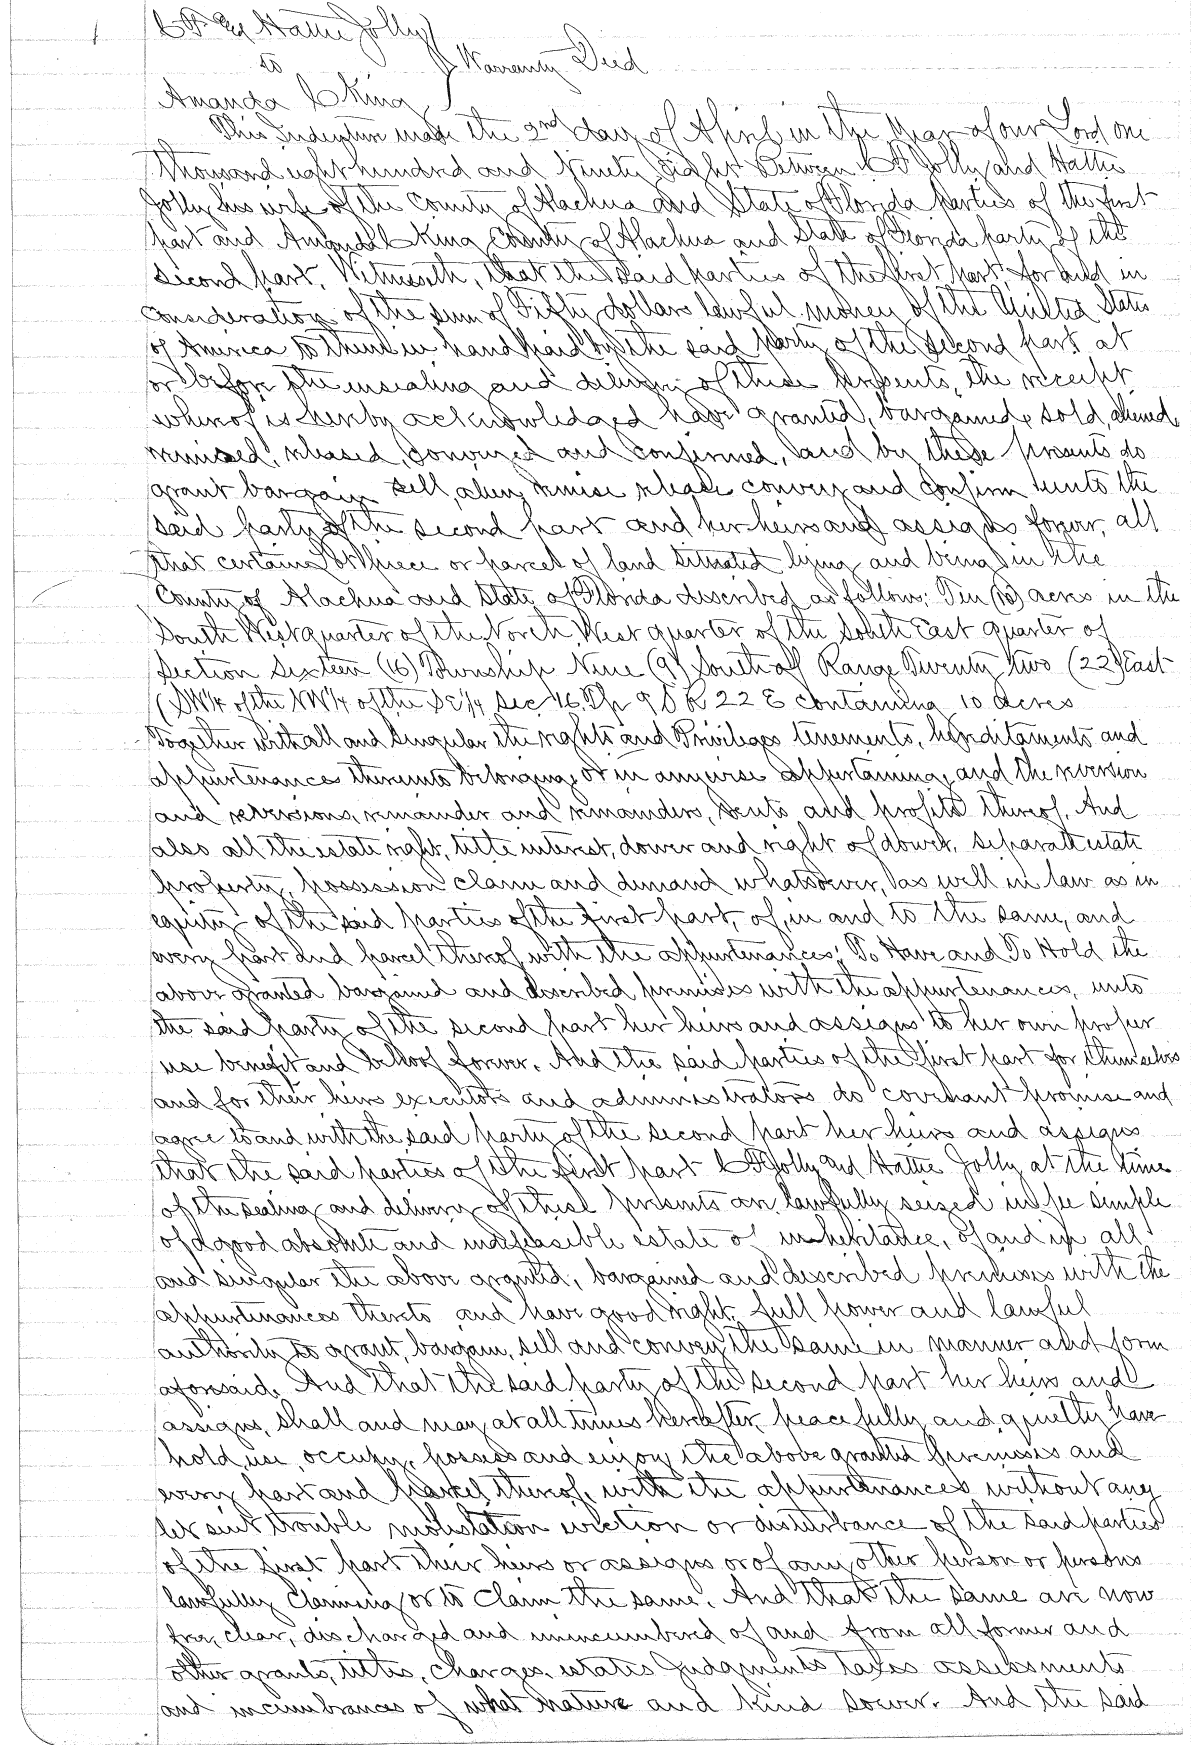 & Hattie Jolly
to Warranty Deed
Amanda C King
This Indenture made the 2nd day of April in the Year of our Lord one
thousand eight hundred and Ninety Eight Between C F Jolly and Hattie
Jolly his wife of the County of Alachua and State of Florida parties of the first
part and Amanda C King County of Alachua and State of Florida party of the
second part, Witnesseth, that the said parties of the first part, for and in
consideration of the sum of Fifty dollars lawful money of the United States
of America to them in hand paid by the said party of the second part at
or before the ensealing and delivery of these presents, the receipt
whereof is hereby acknowledged have granted, bargained, sold, aliened,
remised, released, conveyed and confirmed, and by these presents do
grant bargain sell, alien, remise release convey and confirm unto the
said party of the second part and her heirs and assigns forever, all
that certain lot piece or parcel of land situated lying and being in the
County of Alachua and State of Florida described as follow: Ten (10) acres in the
South West quarter of the North West quarter of the South East quarter of
Section Sixteen (16) Township Nine (9) South of Range Twenty two (22) East
(SW¼ of the NW¼ of the SE¼ Sec 16. Tp 9 S R 22 E containing 10 acres
Together with all and singular the rights and Privileges tenements, hereditaments and
appurtenances thereunto belonging or in anywise appertaining, and the reversion
and reversions, remainder and remainders, rents and profits thereof, And
also all the estate right, title interest, dower and right of dower, separate estate
property, possession claim and demand whatsoever, as well in law as in
equity of the said parties of the first part, of, in and to the same, and
every part and parcel thereof with the appurtenances; To Have and To Hold the
above granted bargained and described premises with the appurtenances, unto
the said party of the second part her heirs and assigns to her own proper
use benefit and behoof forever. And the said parties of the first part for themselves
and for their heirs executors and administrators do covenant promise and
agree to and with the said party of the second part her heirs and assigns
that the said parties of the first part C F Jolly and Hattie Jolly at the time
of the sealing and delivery of these presents are lawfully seized in fee simple
of a good absolute and indefeasible estate of inheritance, of and in all
and singular the above granted, bargained and described premises with the
appurtenances thereto and have good right, full power and lawful
authority to grant, bargain, sell and convey the same in manner and form
aforesaid. And that the said party of the second part her heirs and
assigns, shall and may at all times hereafter, peacefully and quietly have
hold, use, occupy, possess and enjoy the above granted premises and
every part and parcel thereof, with the appurtenances without any
let suit trouble molestation eviction or disturbance of the said parties
of the first part their heirs or assigns or of any other person or persons
lawfully Claiming or to claim the same. And that the same are now
free, clear, discharged and unincumbered of and from all former and
other grants, titles, charges, estates Judgments taxes assessments
and incumbrances of what nature and kind soever. And the said